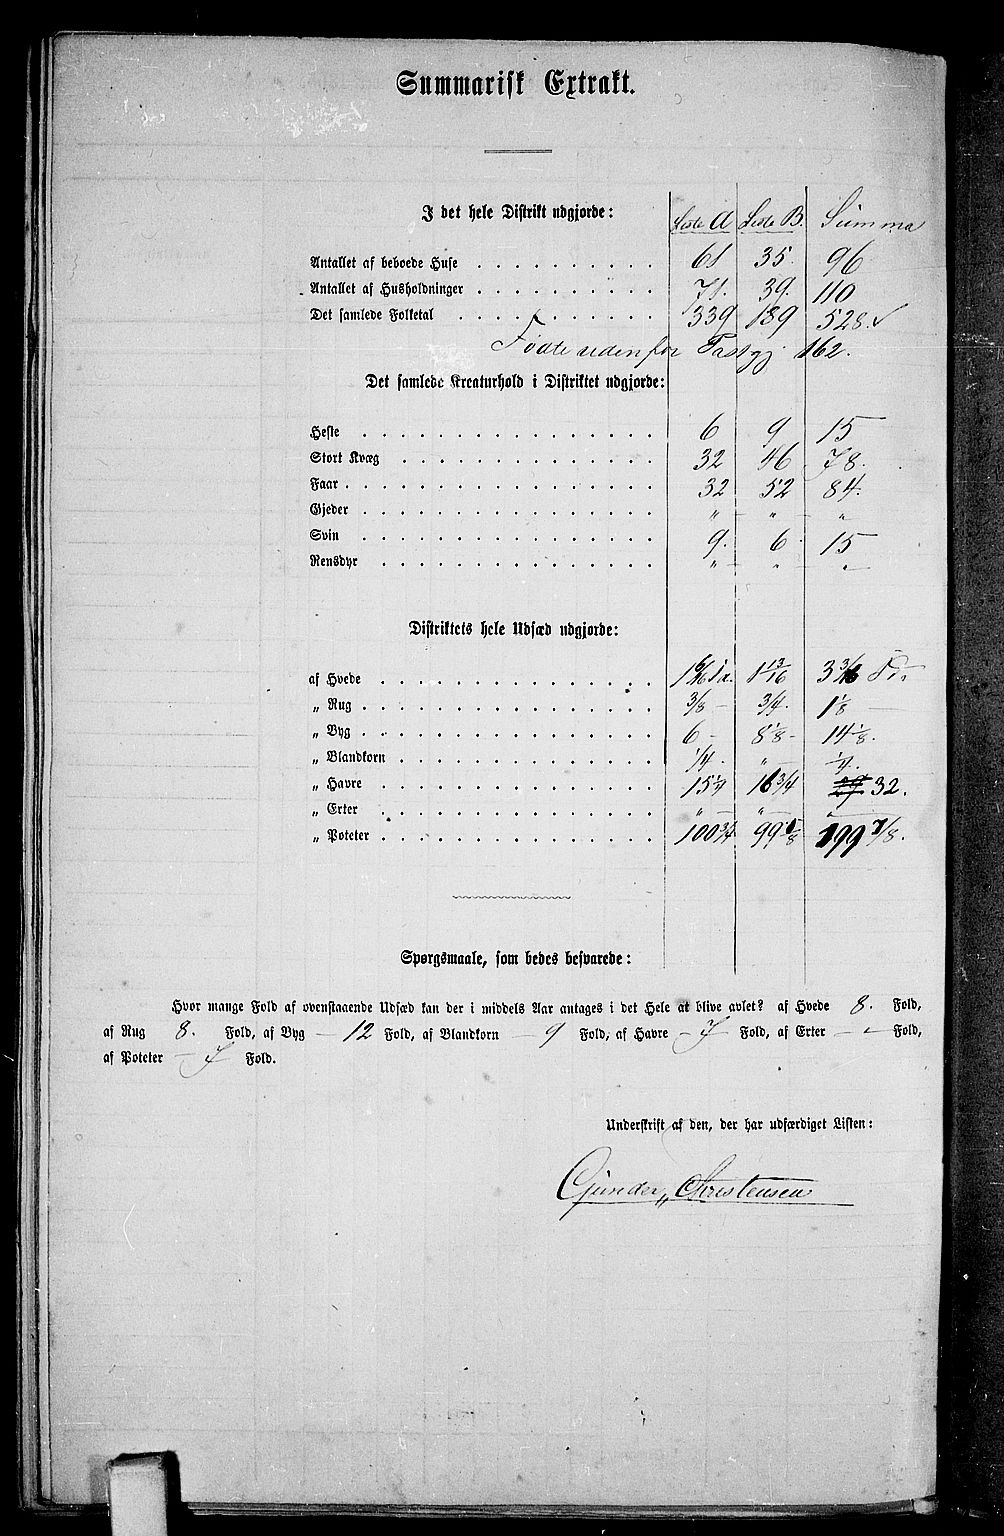 Summarisk Extrakt.
I det hele Distrikt udgjorde:
Liste A Liste B. Summa
Antallet af beboede Huse 61 35. 96
Antallet af Husholdninger 71. 39. 110
Det samlede Folketal 339 189 528.
Fødte udenfor 162.
Det samlede Kreaturhold i Distriktet udgjorde:
Heste 6 9 15
Stort Kvæg 32 46 78.
Faar 32 52 84.
Gjeder " " "
Svin 9. 6. 15
Rensdyr " " "
Distriktets hele Udsæd udgjorde:
af Hvede 1 6/16 Td. 1 13/16 3 3/16 Td.
„ Rug 3/8 3/4. 1 1/8
„ Byg 6 8 1/8 14 1/8.
„ Blandkorn 1/4. " 1/4.
„ Havre 15 1/4 16 3/4 32.
„ Erter " " "
„ Poteter 100 3/4 99 1/8 199 7/8.
Spørgsmaale, som bedes besvarede:
Hvor mange Fold af ovenstaaende Udsæd kan der i middels Aar antages i det Hele at blive avlet? af Hvede 8. Fold,
af Rug 8. Fold, af Byg 12 Fold, af Blandkorn 9 Fold, af Havre 7 Fold, af Erter — Fold,
af Poteter 7 Fold.
Underskrift af den, der har udfærdiget Listen:
Gunder Christensen